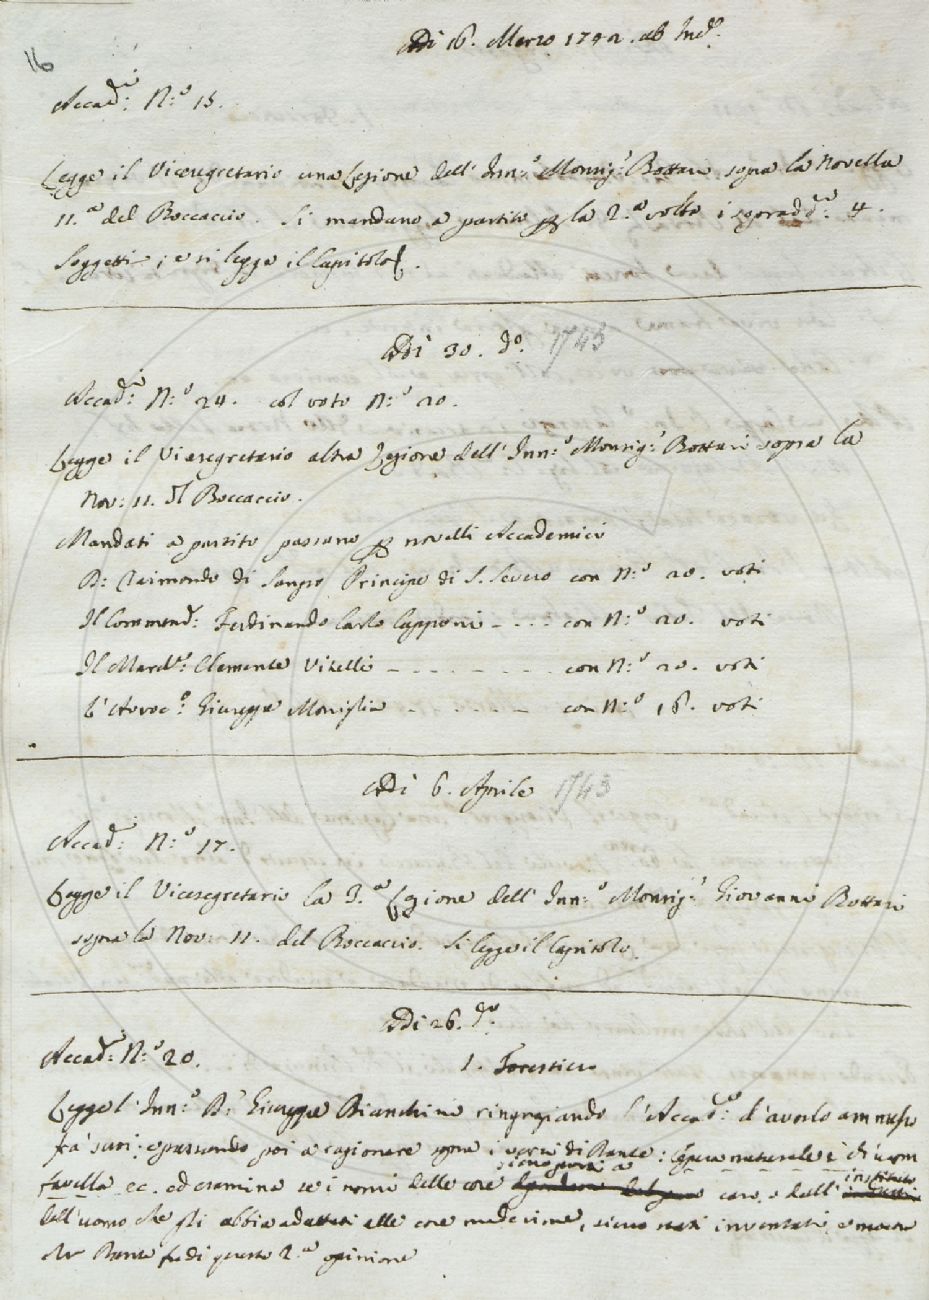 16
Adì 16. Marzo 1742. ab Inc.°
Accad.ci N:° 15.
Legge il Vicesegretario una Lezione dell' Inn:° Monsig.r Bottari sopra la Novella
11.a del Boccaccio. Si mandano a partito p la 2.a volta i sopradd.i 4.
Soggetti; e si legge il Capitolo.
Adì 30. d.° 1743
Accad.ci N:° 24. col voto N:° 20.
Legge il Vicesegretario altra Lezione dell' Inn:° Monsig.r Bottari sopra la
Nov: 11. del Boccaccio.
Mandati a partito passano p novelli Accademici
D: Raimondo di Sangro Principe di S. Severo con N:° 20. voti
Il Commend.r Ferdinando Carlo Capponi - - - - con N:° 20. voti
Il March.e Clemente Vitelli - - - - - - - con N:° 20. voti
L' Avvoc.° Giuseppe Moniglia - - - - - - con N:° 18. voti
Adì 6. Aprile 1743
Accad.ci N:° 17.
Legge il Vicesegretario la 3.a Lezione dell' Inn:° Monsig.r Giovanni Bottari
sopra la Nov: 11. del Boccaccio. Si legge il Capitolo.
Adì 26. d.°
Accad.ci N:° 20. 1. Forestiero
Legge l' Inn:° D.r Giuseppe Bianchini ringraziando l' Accad.a d' averlo ammesso
fra' suoi; e passando poi a ragionare sopra i versi di Dante: Opera naturale è ch' uom
favella ec. ed esamina se i nomi delle cose siano posti a caso, o dall' instituto
dell' uomo che gli abbia adattati alle cose medesime, sieno stati inventati, e mostra
che Dante fu di questa 2.a opinione